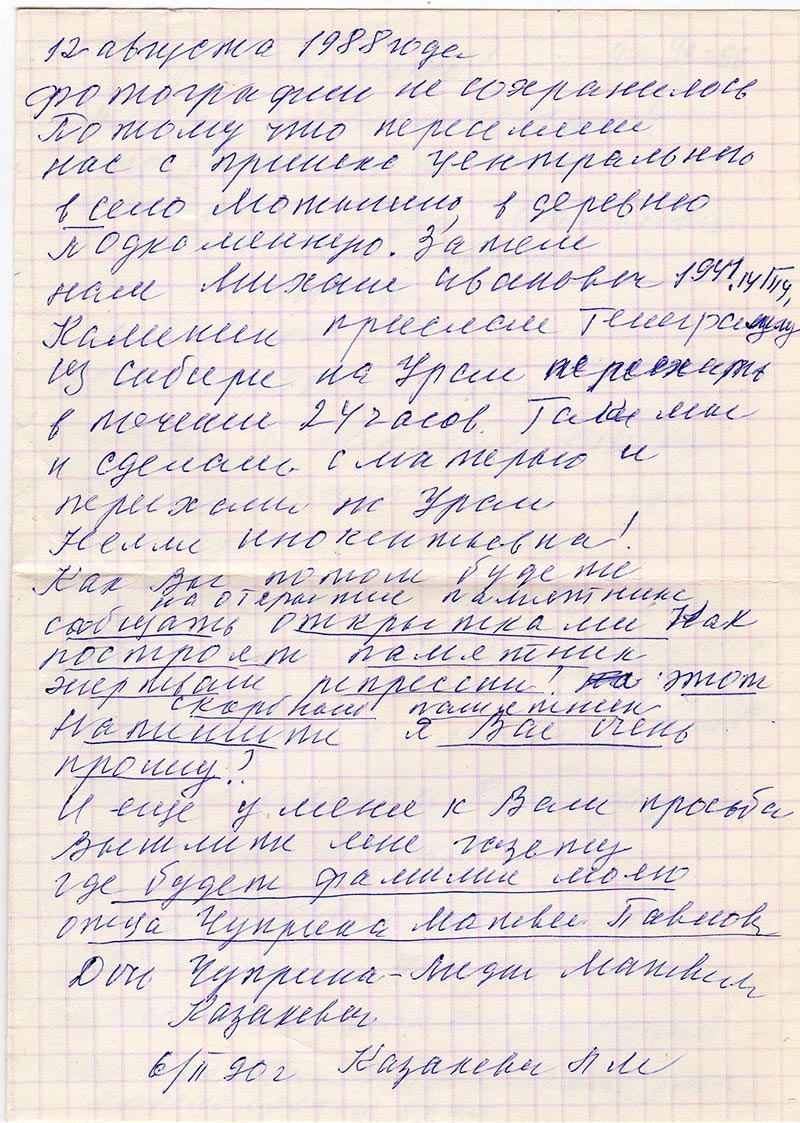 12 августа 1988 года
фотографии не сохранилось
Потому что переселили
нас с прииска Центрального
в село Мотыгино, в деревню
Подкаменную. Затем
нам Михаил Иванович 1941
Калинин прислал телеграмму
из Сибири на Урал переехать
в течении 24 часов. Так мы
и сделали с матерью и
переехали на Урал
Нелли Инокентьевна!
Как Вы потом будете
на открытие памятника
сообщать открытками как
построят памятник
жертвам репрессии! на этот
скорбный памятник
Напишите я Вас очень
прошу?
И еще у меня к Вам просьба
вышлите мне газету
где будет фамилия моего
отца Чуприна Матвея Павлов
Дочь Чуприна-Лидия Матвеев
Казакевич
6/II 90 г Казакевич